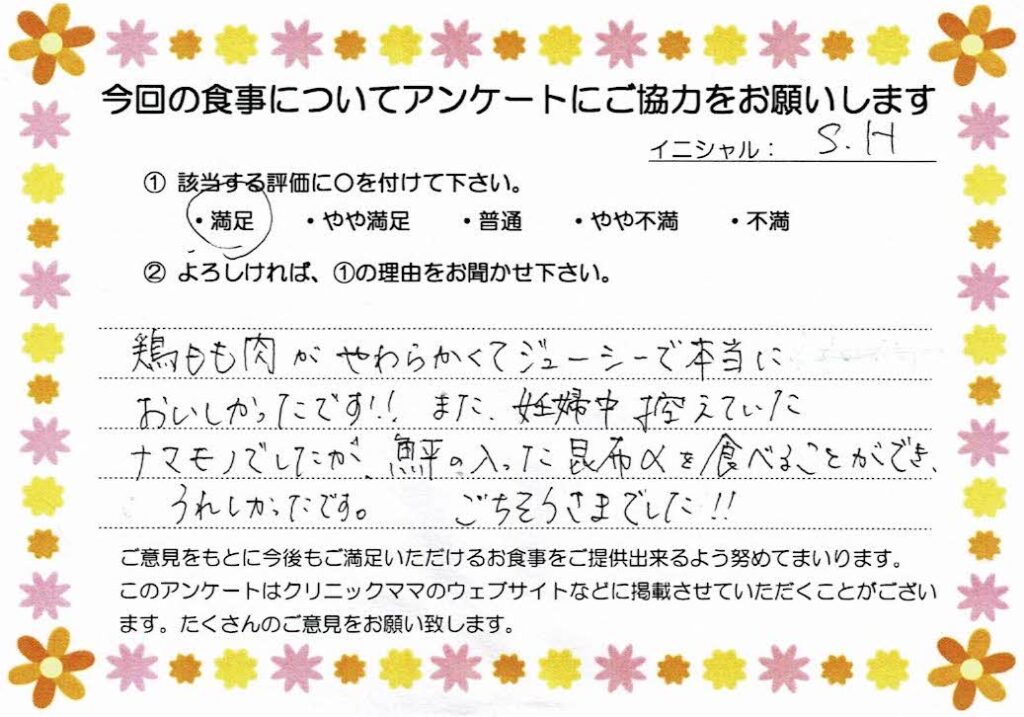 今回の食事についてアンケートにご協力をお願いします
イニシャル： S.H
① 該当する評価に〇を付けて下さい。
・満足 ・やや満足 ・普通 ・やや不満 ・不満
② よろしければ、①の理由をお聞かせ下さい。
鶏もも肉がやわらかくてジューシーで本当に
おいしかったです!! また、妊婦中控えていた
ナマモノでしたが、鮃の入った昆布〆を食べることができ、
うれしかったです。 ごちそうさまでした!!
ご意見をもとに今後もご満足いただけるお食事をご提供出来るよう努めてまいります。
このアンケートはクリニックママのウェブサイトなどに掲載させていただくことがござい
ます。たくさんのご意見をお願い致します。